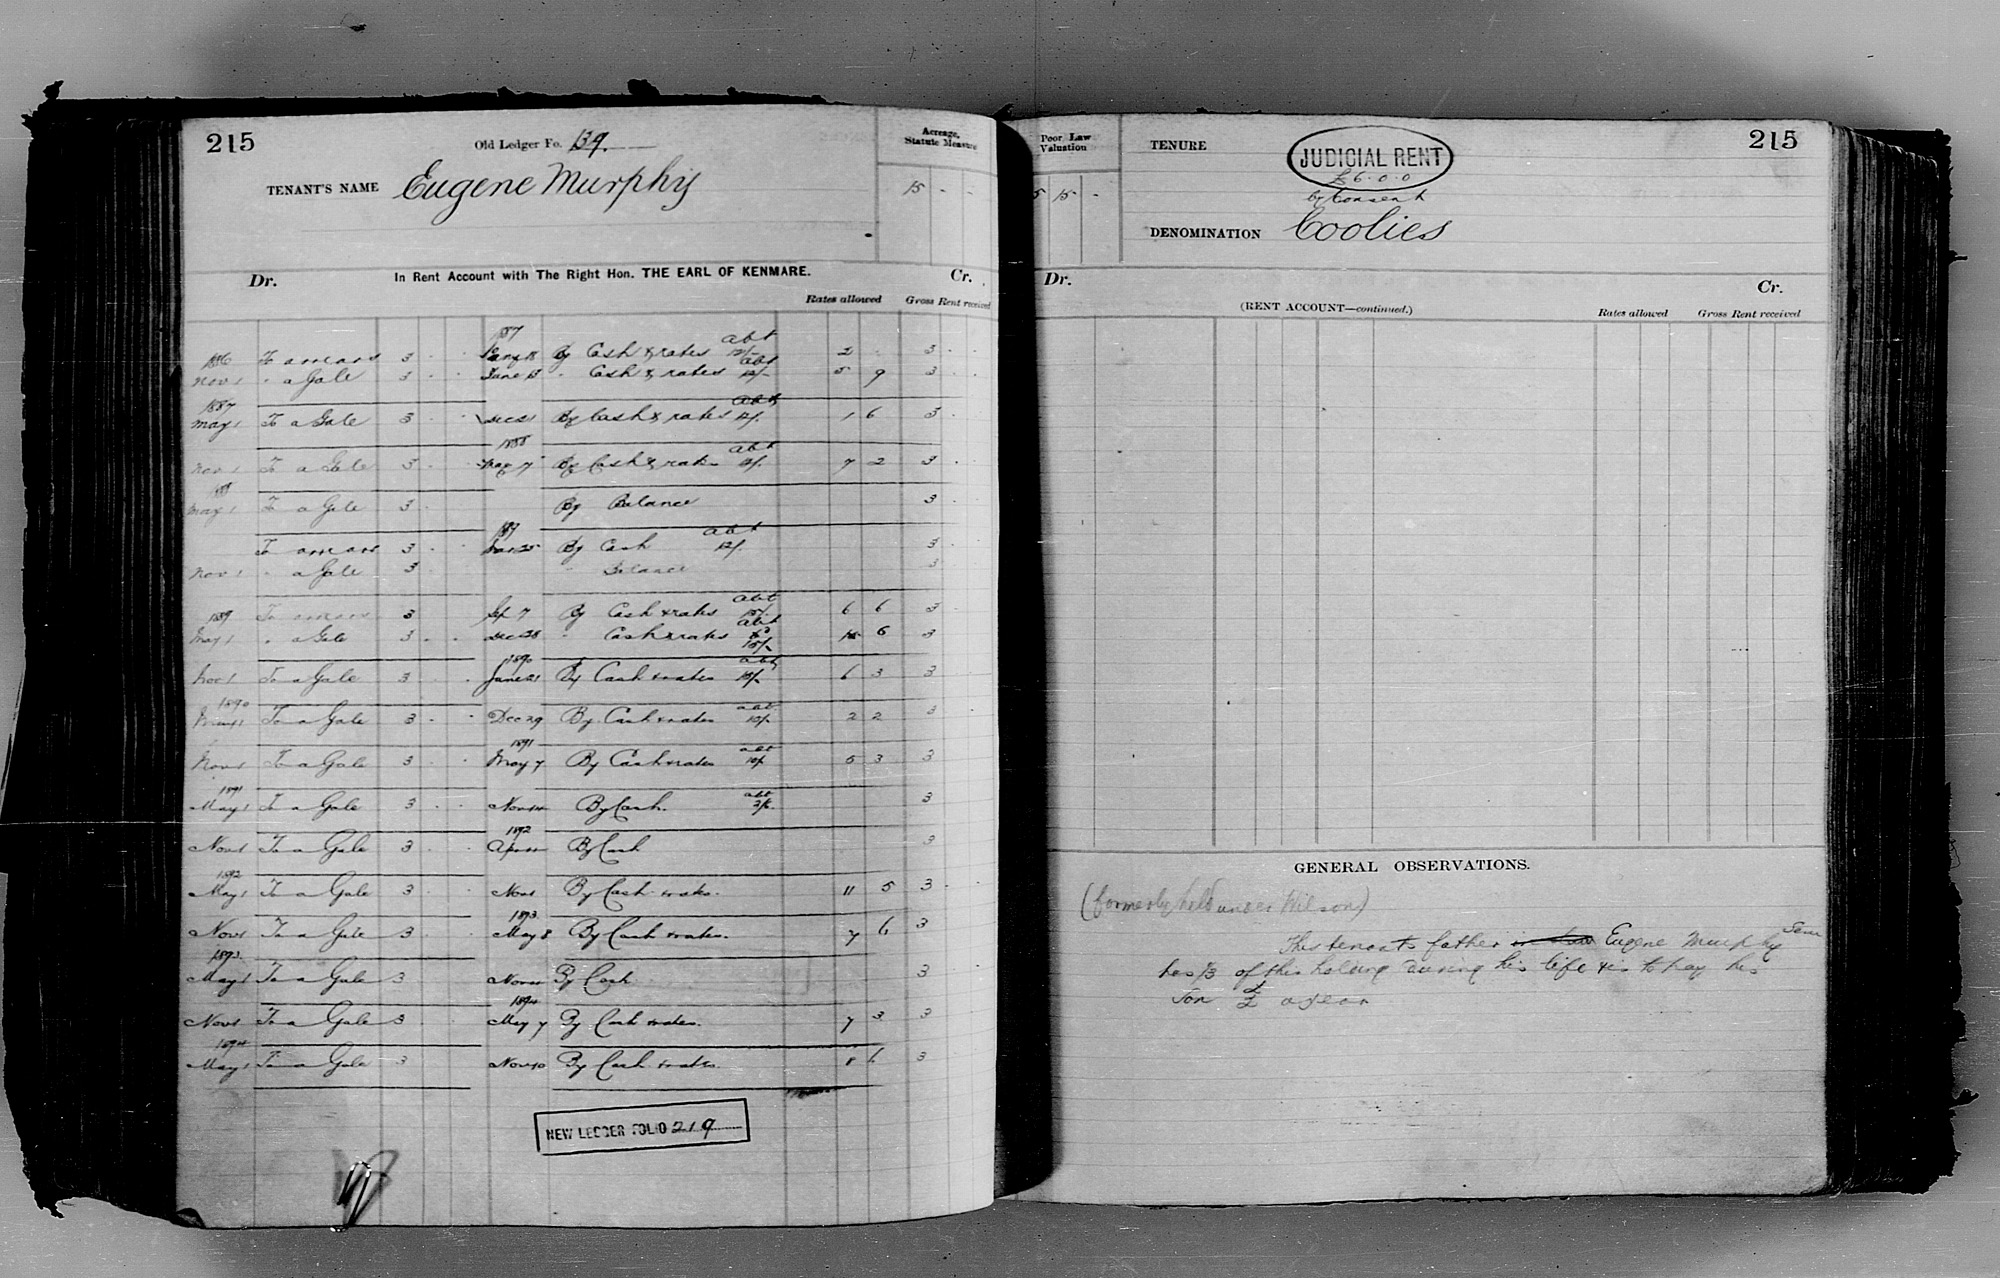 215
Old Ledger Fo. 139.
Acreage, Statute Measure
TENANT'S NAME Eugene Murphy
15 - -
Dr. In Rent Account with The Right Hon. THE EARL OF KENMARE. Cr.
Rates allowed Gross Rent received
1887 abt
1886 To arrears 3 18 By Cash & rates 12/- 2 3
Nov 1 " a Gale 3 June 13 " Cash & rates abt 12/- 5 9 3
1887 abt
May 1 To a Gale 3 Dec 21 By Cash & rates 12/- 1 6 3
1888 abt
Nov 1 To a Gale 3 May 7 By Cash & rates 12/- 7 2 3
188
May 1 To a Gale 3 By Balance 3
abt
To arrears 3 25 By Cash 12/- 3
Nov 1 " a Gale 3 " Balance 3
abt
1889 To arrears 3 Sep 7 By Cash & rates 6 6 3
May 1 " a Gale 3 Dec 28 " Cash & rates abt 6 3
1890 abt
Nov 1 To a Gale 3 June 21 By Cash & rates 10/- 6 3 3
1890 abt
May 1 To a Gale 3 Dec 29 By Cash & rates 10/- 2 2 3
1891 abt
Nov 1 To a Gale 3 May 7 By Cash & rates 10/- 5 3 3
1891 abt
May 1 To a Gale 3 Nov 14 By Cash. 3
1892
Nov 1 To a Gale 3 Apr By Cash 3
1892
May 1 To a Gale 3 Nov 1 By Cash & rates. 11 5 3
1893
Nov 1 To a Gale 3 May 8 By Cash & rates. 7 6 3
1893
May 1 To a Gale 3 Nov By Cash 3
1894
Nov 1 To a Gale 3 May 7 By Cash & rates. 7 3 3
1894
May 1 To a Gale 3 Nov 10 By Cash & rates. 8 6 3
NEW LEDGER FOLIO 219
Poor Law Valuation
5 15 -
TENURE
JUDICIAL RENT
£6.0.0
by Consent
215
DENOMINATION Coolies
Dr. Cr.
(RENT ACCOUNT—continued.)
Rates allowed Gross Rent received
GENERAL OBSERVATIONS.
(formerly held under Wilson)
This tenants father Eugene Murphy Senr
has 1/3 of this holding during his life & is to pay his
Son £2 a year